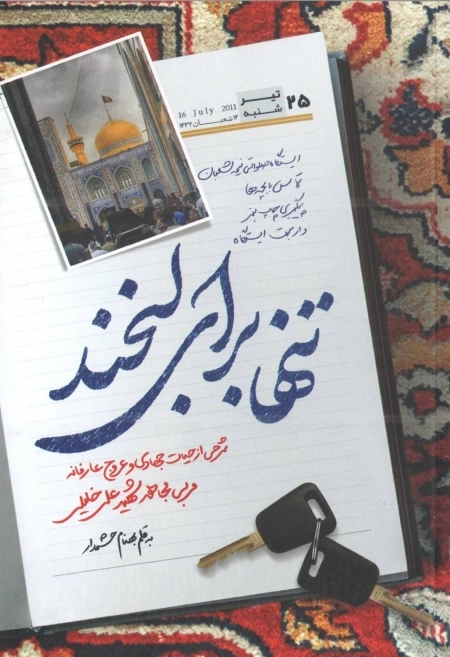 ۲۵ تیر شنبه
16 July 2011
۱۴ شعبان ۱۴۳۲
ایستگاه صلواتی نیمه شعبان
تماس با بچه‌ها
پیگیری چاپ بنر
داربست ایستگاه
تنها برای لبخند
شرحی از حیات جهادی و عروج عارفانه
مربی مجاهد شهید علی خلیلی
به قلم بهنام حشمدار